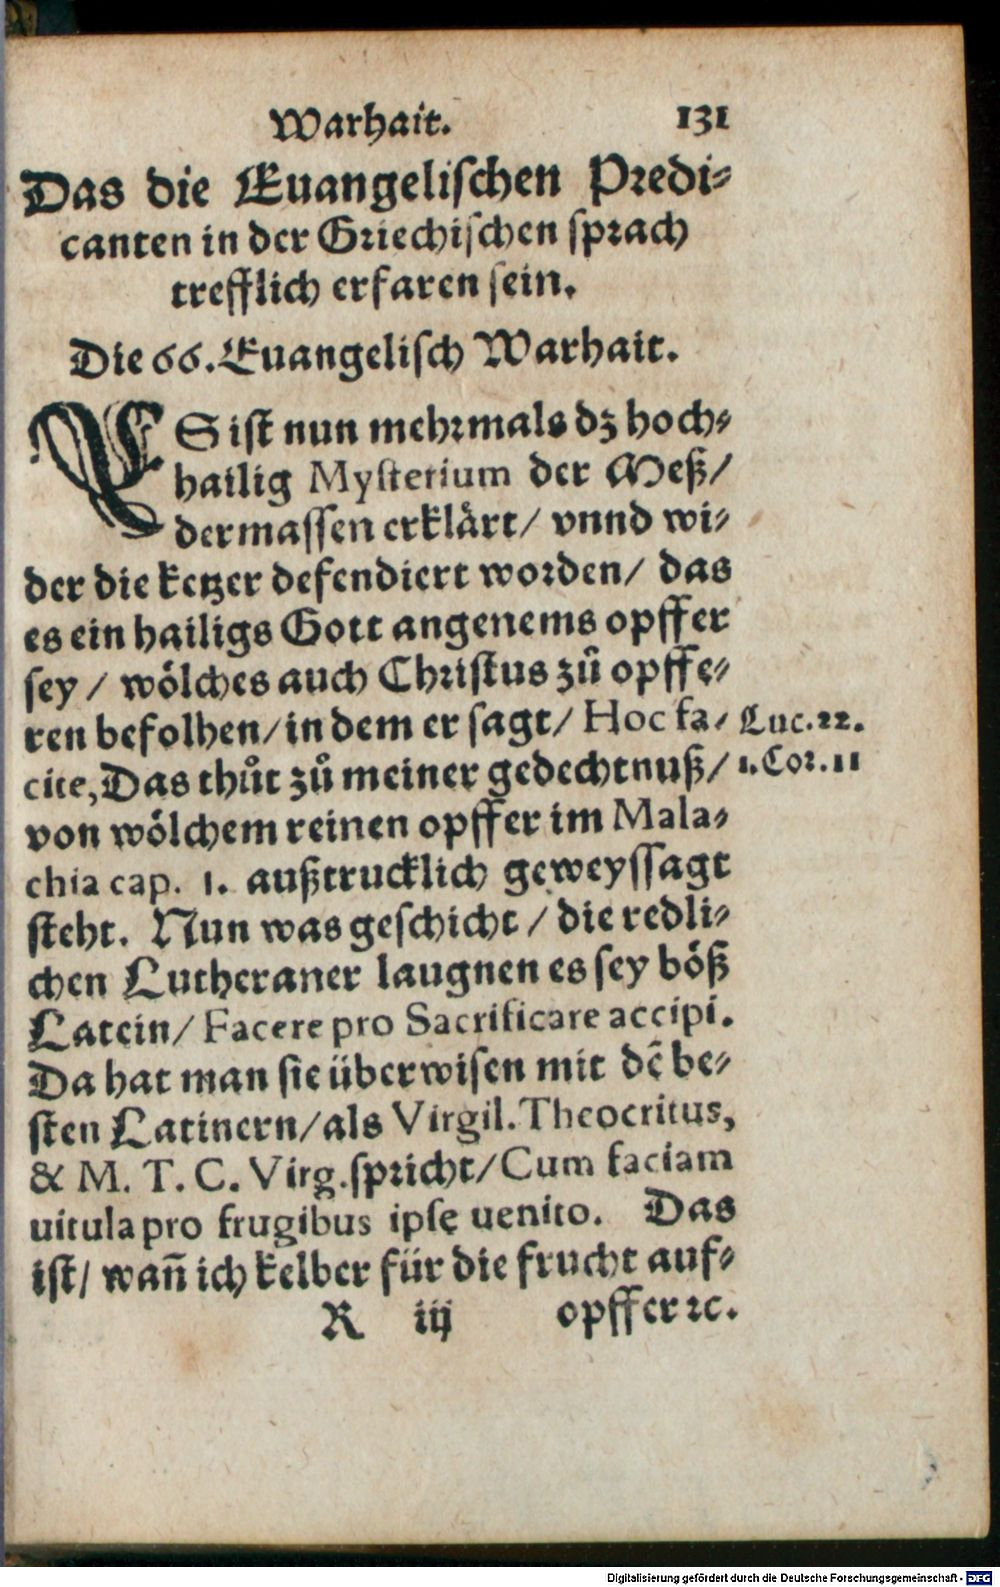 Warhait. 131
Das die Euangelischen Predi-
canten in der Griechischen sprach
trefflich erfaren sein.
Die 66. Euangelisch Warhait.
ES ist nun mehrmals dz hoch-
hailig Mysterium der Meß/
dermassen erklärt/ vnnd wi-
der die ketzer defendiert worden/ das
es ein hailigs Gott angenems opffer
sey / wölches auch Christus zů opffe-
ren befolhen/ in dem er sagt/ Hoc fa- Luc. 22.
cite, Das thůt zů meiner gedechtnuß/ 1. Cor. 11
von wölchem reinen opffer im Mala-
chia cap. 1. außtrucklich geweyssagt
steht. Nun was geschicht / die redli-
chen Lutheraner laugnen es sey böß
Latein/ Facere pro Sacrificare accipi.
Da hat man sie überwisen mit dē be-
sten Latinern/ als Virgil. Theocritus,
& M. T. C. Virg. spricht/ Cum faciam
uitula pro frugibus ipse uenito. Das
ist/ wañ ich kelber für die frucht auf-
R iij opffer ꝛc.
Digitalisierung gefördert durch die Deutsche Forschungsgemeinschaft - DFG